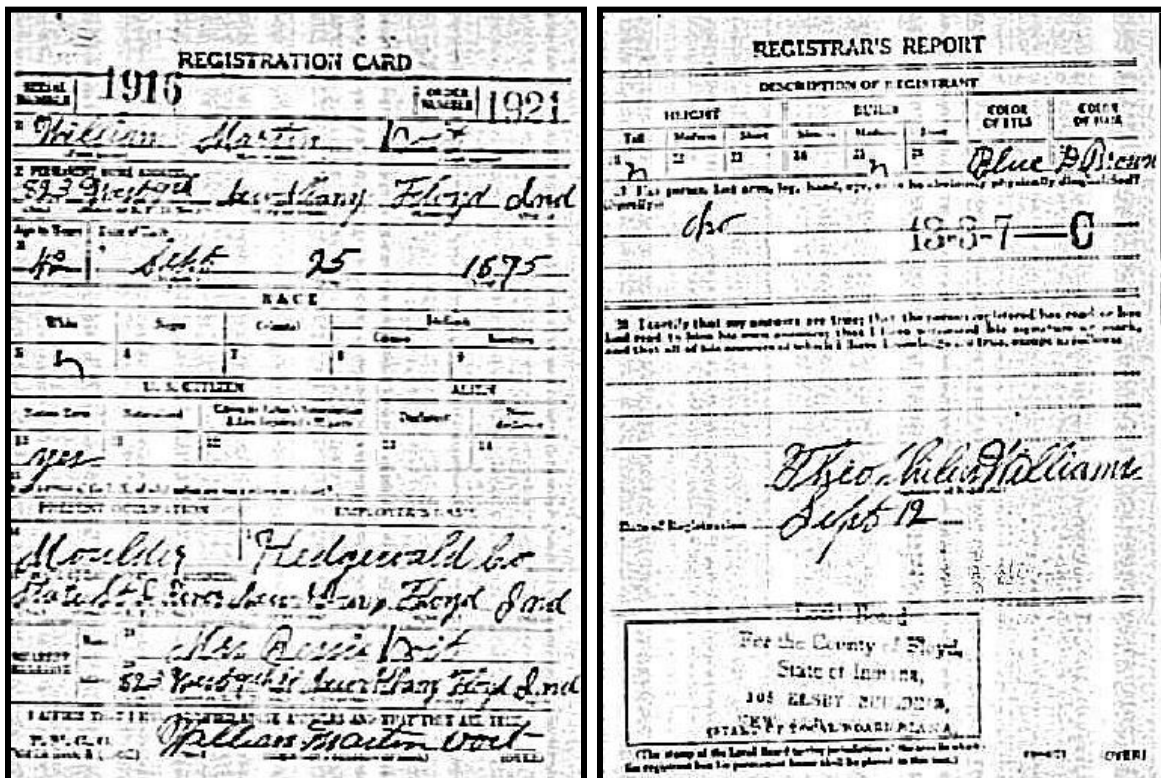 REGISTRATION CARD
SERIAL NUMBER 1916 ORDER NUMBER 1921
William Martin
523 Floyd Ind
Age in Years Date of Birth
42 Sept 25 1875
RACE
White Negro Oriental Indian
Citizen
5 6 7 8 9
U. S. CITIZEN ALIEN
Native Born Naturalized Declarant
10 11 12 13 14
yes
PRESENT OCCUPATION EMPLOYER'S NAME
Moulder Hedgewald Co
State St Floyd Ind
NEAREST RELATIVE Name Mrs Bessie Voit
523 Floyd Ind
I AFFIRM THAT I HAVE VERIFIED ABOVE ANSWERS AND THAT THEY ARE TRUE
William Martin Voit
(OVER)
REGISTRAR'S REPORT
DESCRIPTION OF REGISTRANT
HEIGHT BUILD COLOR OF EYES COLOR OF HAIR
Tall Medium Short Slender Medium Stout
21 22 23 24 25 26 Blue D Brown
29 Has person lost arm, leg, hand, eye, or is he obviously physically disqualified?
(Specify.)
No
13-3-7—C
30 I certify that my answers are true; that the person registered has read or has
had read to him his own answers; that I have witnessed his signature or mark,
and that all of his answers of which I have knowledge are true, except as follows:
Theophilus Williams
Date of Registration Sept 12
Local Board
For the County of Floyd,
State of Indiana,
NEW ALBANY, INDIANA.
(STAMP OF LOCAL BOARD)
(The stamp of the Local Board having jurisdiction of the area in which
the registrant has his permanent home shall be placed in this box.)
(OVER)